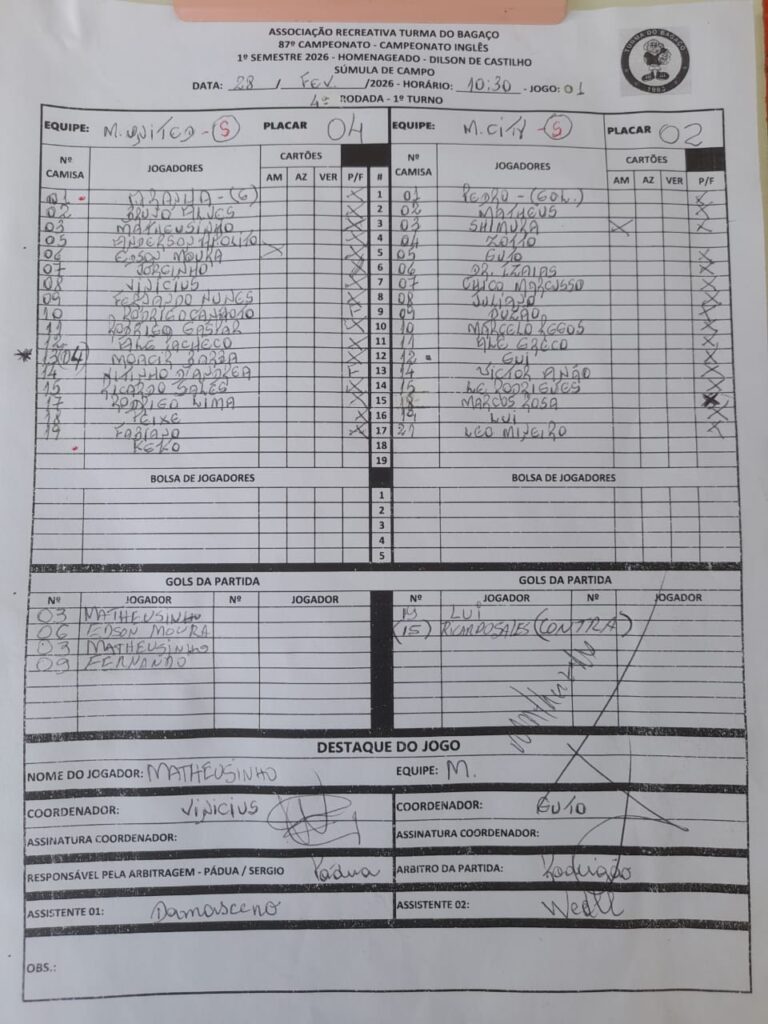 ASSOCIAÇÃO RECREATIVA TURMA DO BAGAÇO
87º CAMPEONATO - CAMPEONATO INGLÊS
1º SEMESTRE 2026 - HOMENAGEADO - DILSON DE CASTILHO
SÚMULA DE CAMPO
DATA: 28 / FEV. /2026 - HORÁRIO: 10:30 - JOGO: 01
4ª RODADA - 1º TURNO
TURMA DO BAGAÇO
EQUIPE: M. UNITED - (S) PLACAR 04 EQUIPE: M. CITY - (S) PLACAR 02
Nº CAMISA JOGADORES CARTÕES AM AZ VER P/F # Nº CAMISA JOGADORES CARTÕES AM AZ VER P/F
01 (G) X 1 01 PEDRO - (GOL.) X
02 BRUNO ALVES X 2 02 MATHEUS X
03 MATHEUSINHO X 3 03 SHIMURA X X
05 ANDERSON HIPOLITO X 4 04 ZOTTO
06 EDSON MOURA X X 5 05 GUTO X
07 JORGINHO X 6 06 DR. IZAIAS X
08 VINICIUS X 7 07 CHICO MARCUSSO X
09 FERNANDO NUNES X 8 08 JULIANO X
10 RODRIGO F 9 09 DUZÃO X
11 RODRIGO GASPAR X 10 10 MARCELO X
12 ALE PACHECO X 11 11 ALE GRECO X
* 13(04) MOACIR X 12 12 GUI X
14 NITINHO D'ANDREA F 13 14 VICTOR ANÃO X
15 RICARDO SALES X 14 15 LE RODRIGUES X
17 RODRIGO LIMA X 15 18 MARCOS ROSA X
18 PEIXE X 16 19 LUI X
19 FABIANO X 17 21 LEO MINEIRO X
KEKO 18
19
BOLSA DE JOGADORES BOLSA DE JOGADORES
1
2
3
4
5
GOLS DA PARTIDA GOLS DA PARTIDA
Nº JOGADOR Nº JOGADOR Nº JOGADOR Nº JOGADOR
03 MATHEUSINHO 19 LUI
06 EDSON MOURA (15) RICARDO SALES (CONTRA)
03 MATHEUSINHO
09 FERNANDO
DESTAQUE DO JOGO
NOME DO JOGADOR: MATHEUSINHO EQUIPE: M.
COORDENADOR: VINICIUS COORDENADOR: GUTO
ASSINATURA COORDENADOR: ASSINATURA COORDENADOR:
RESPONSÁVEL PELA ARBITRAGEM - PÁDUA / SERGIO Pádua ARBITRO DA PARTIDA: Rodrigão
ASSISTENTE 01: Damasceno ASSISTENTE 02:
OBS.: